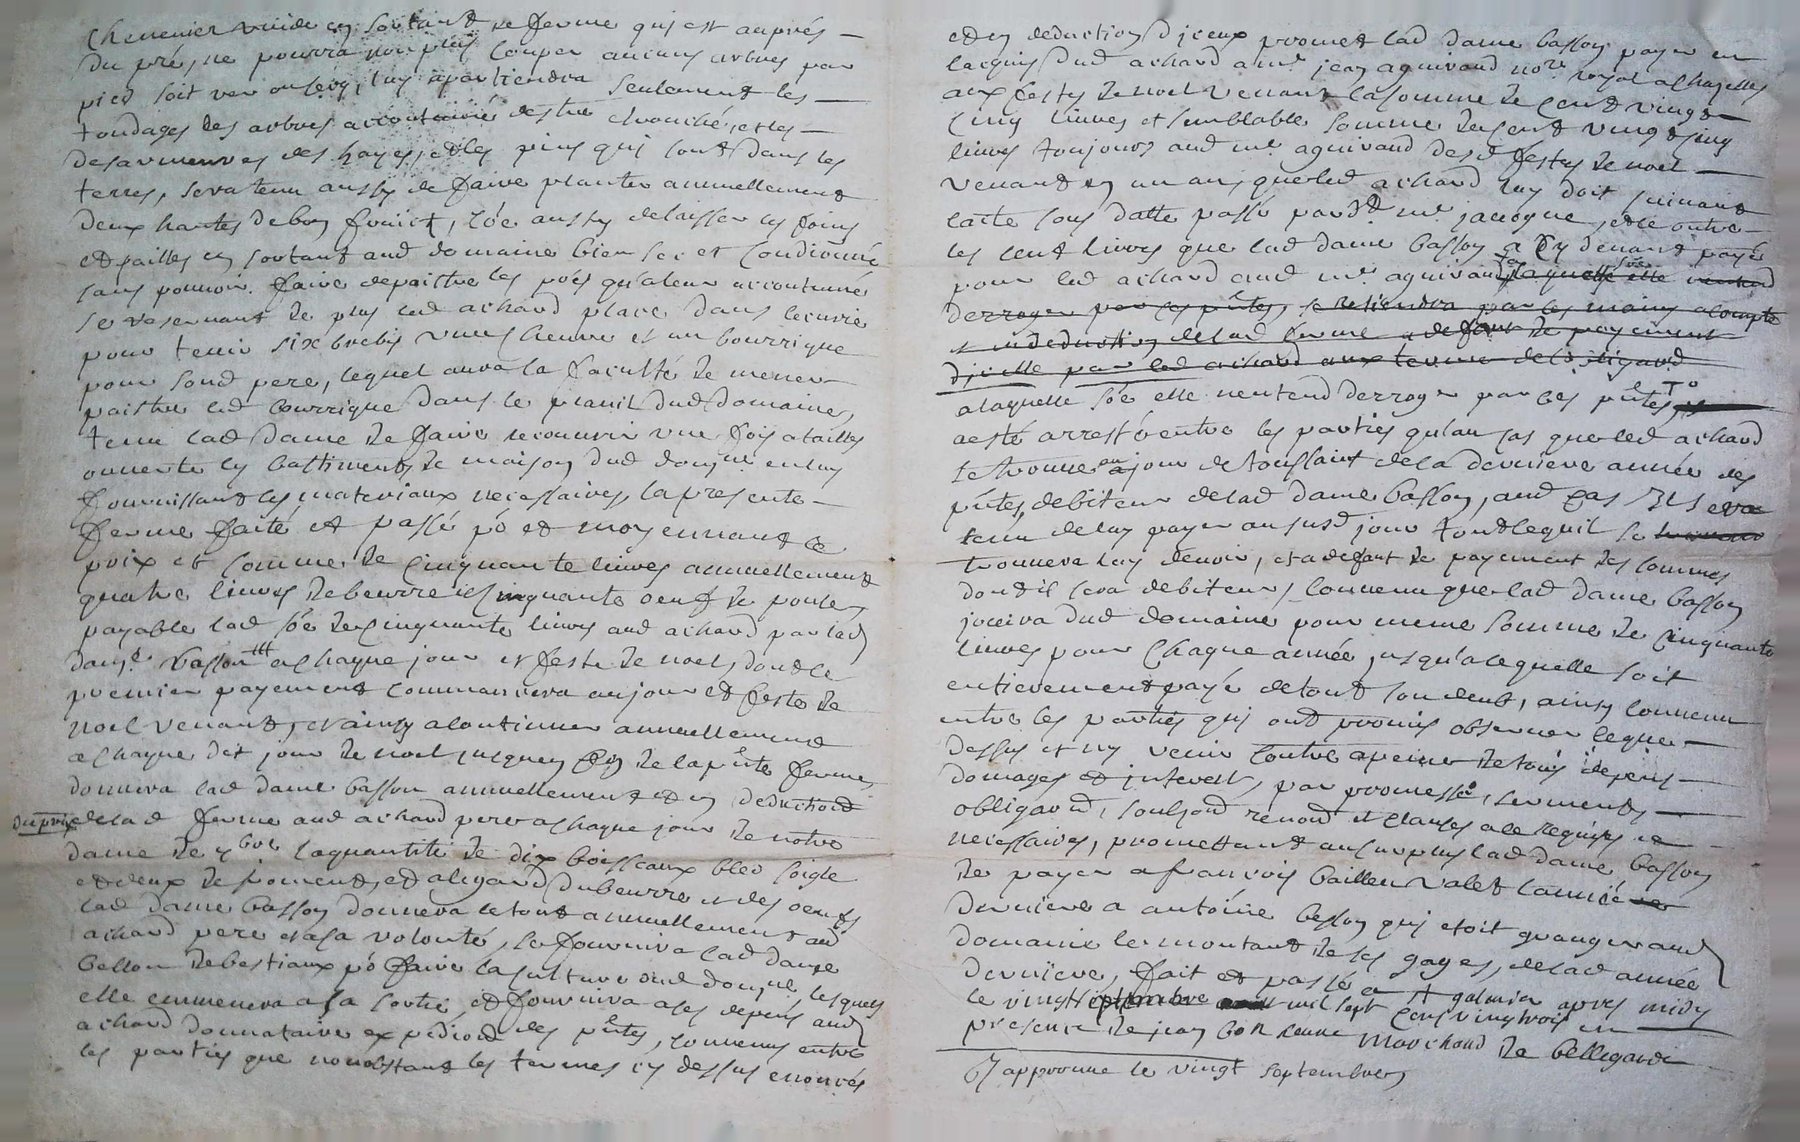 chenevier vuide en sortant de ferme qui est auprés
du pré, ne pourra non plus couper aucuns arbres par
pied soit ver ou secq, luy apartiendra seulement les
tondages des arbres accoutumé destre ebranché, et les
desavmeures des hayes, et les pins qui sont dans les
terres, sera tenu aussy de faire planter annuellement
deux hantes de bon fruict, co'e aussy delaisser les foins
et pailles en sortant aud domaine bien sec et condionné
sans pouvoir faire depaistre les prés qu'a leur accoutumé
se reservant de plus led achard place dans lecurie
pour tenir six brebis vune chevre et un bourrique
pour sond pere, lequel aura la faculté de mener
paistre led bourrique dans le planil dud domaine,
tenu lad dame de faire recouvrir une fois a tailles
ouverte les battiments de maison dud dom͞ne en luy
fournissant les materiaux necessaires, la presente
ferme faite et passé p̄o et moyennant le
prix et somme de cinquante livres annuellement
quatre livres de beurre et cinquante oeufs de poules
payable lad so'e de cinquante livres aud achard par lad
dam͞e Basson a chaque jour et feste de noel, dont le
premier payement commancera au jour et feste de
noel venant, et ainsy a continuer annuellement
a chaque dit jour de noel jusques fin de la pñte ferme,
donnera lad dame basson annuellement et en deduction
du prix de lad ferme aud achard pere a chaque jour de notre
dame de 7bre la quantité de dix boisseaux bled soigle
et deux de froment, et a legard du beurre et des oeufs
lad dame basson donnera le tout annuellement aud
achard pere et a sa volonté, se fournira lad dame
basson de bestiaux p̄o faire la culture dud dom͞ne lesquels
elle emmenera a sa sortie, et fournira a ses depens aud
achard donnataire expedion des pñtes, convenu entre
les parties que nonobstant les termes cy dessus enoncés
et en deduction d'jceux promet lad dame basson payer en
lacquis dud achard a me jean aguiraud no͞re royal a chazelles
aux festes de noel venant la somme de cent vingt
cinq livres et semblable somme de cent vingt cinq
livres toujours aud me aguiraud desd festes de noel
venant en un an, que led achard luy doit suivant
lacte sous datte passé pard͞t me jacogne, et le outre
les cent livres que lad dame basson a cy devant payé
pour led achard aud me aguiraud laquelle so'e elle nentend
derroger par les pñtes, se retiendra par les mains a compte
et en deduction de lad ferme a defaut de payement
d'jcelle par led achard aux terme de lobligaõn
a laquelle so'e elle nentend derroger par ces pñtes
a esté arresté entre les parties qu'au cas que led achard
se trouve au jour de toussaint de la derniere année des
pñtes, debiteur de lad dame basson, aud cas il sera
tenu de luy payer au susd jour tout lequil se
trouvera luy devoir, et a defaut de payement des sommes
dont il sera debiteur, convenu que lad dame basson
jouira dud domaine pour meme somme de cinquante
livres pour chaque année, jusqu'a lequelle soit
entierement payé de tout son deub, ainsy convenu
entre les parties qui ont promis observer leque
dessus et ny venir contre a peine de tous depens
domages et interest, par promesses, serments,
obligaõn, soubzon renon et clauses a ce requises et
necessaires, promettant au surplus lad dame basson
de payer a francois bailleu valet lannée
derniere a antoine besson qui etoit granger aud
domaine le montant de ses gages, de lad année
derniere, fait et passé a st galmier apres midy
le vingt septembre mil sept cens vingt trois en
presence de jean bon marchand de bellegarde
approuve le vingt septembre